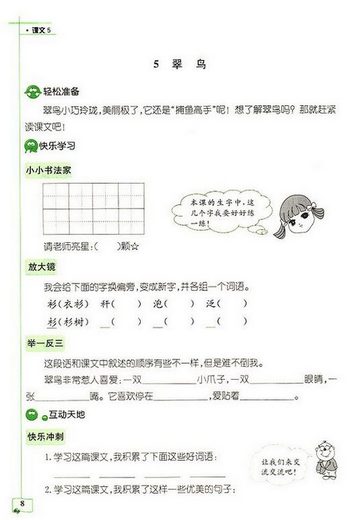 ·课文5
5 翠鸟
轻松准备
翠鸟小巧玲珑,美丽极了,它还是“捕鱼高手”呢!想了解翠鸟吗?那就赶紧
读课文吧!
快乐学习
小小书法家
本课的生字中,这
几个字我要好好练
一练!
请老师亮星:( )颗☆
放大镜
我会给下面的字换偏旁,变成新字,并各组一个词语。
衫(衣衫) 秆( ) 泡( ) 泛( )
杉(杉树) ( ) ( ) ( )
举一反三
这段话和课文中叙述的顺序有些不一样,但是难不倒我。
翠鸟非常惹人喜爱:一双________小爪子,一双________眼睛,一
张________嘴。它喜欢停在________,爱贴着________。
互动天地
快乐冲刺
1.学习这篇课文,我积累了下面这些好词语:
让我们来交
流交流吧!
2.学习这篇课文,我积累了这样一些优美的句子:
8